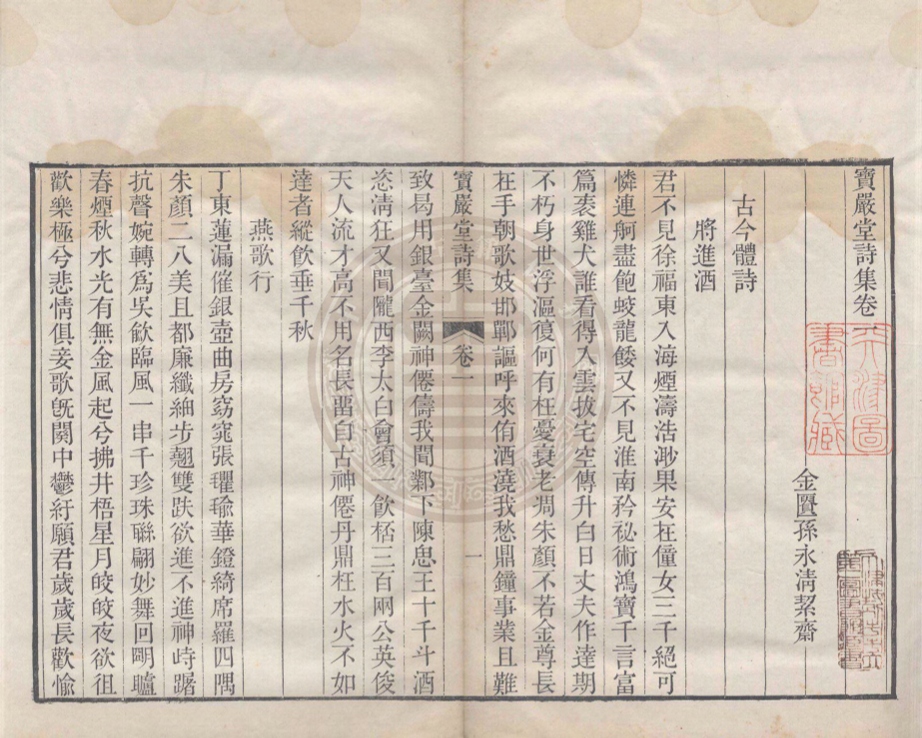 寶嚴堂詩集卷一
金匱孫永淸絜齋
古今體詩
將進酒
君不見徐福東入海煙濤浩渺果安在僮女三千絕可
憐連舸盡飽蛟龍餧又不見淮南矜祕術鴻寶千言富
篇袠雞犬誰看得入雲拔宅空傳升白日丈夫作達期
不朽身世浮漚復何有枉憂衰老凋朱顏不若金尊長
在手朝歌妓邯鄲謳呼來侑酒澆我愁鼎鐘事業且難
寶嚴堂詩集 卷一 一
致曷用銀臺金闕神僊儔我聞鄴下陳思王十千斗酒
恣淸狂又聞隴西李太白會須一飮桮三百兩公英俊
天人流才高不用名長畱自古神僊丹鼎枉水火不如
達者縱飮垂千秋
燕歌行
丁東蓮漏催銀壺曲房窈窕張瓘瑜華鐙綺席羅四隅
朱顏二八美且都廉纖細步翹雙趺欲進不進神峙躇
抗聲婉轉爲吳歈臨風一串千珍珠聯翩妙舞回明矑
春煙秋水光有無金風起兮拂井梧星月皎皎夜欲徂
歡樂極兮悲情俱妾歌旣闋中鬱紆願君歲歲長歡愉
天津圖書館藏